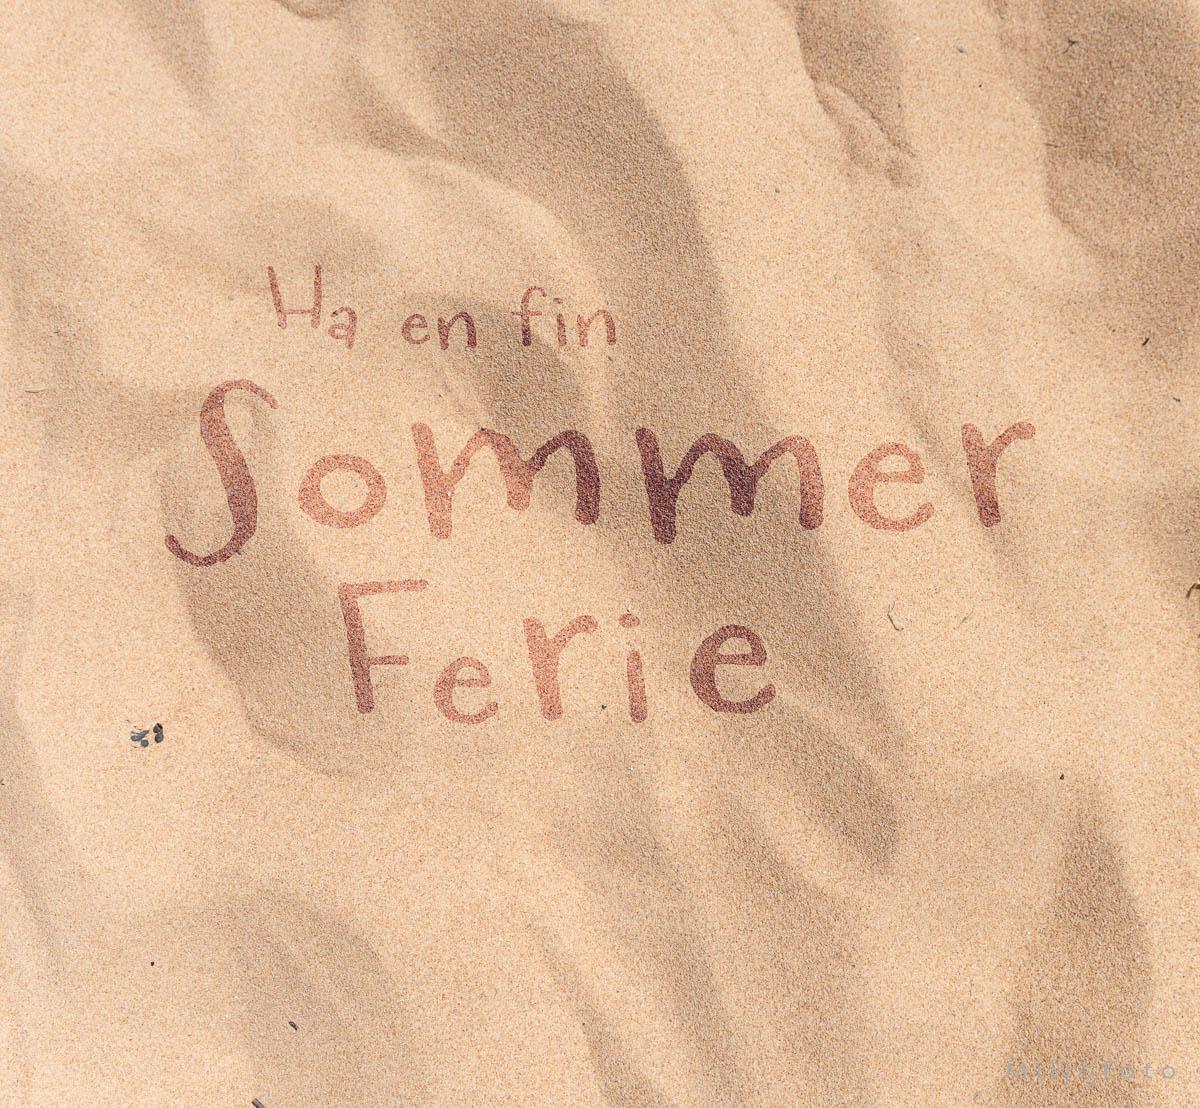 Ha en fin
Sommer
Ferie